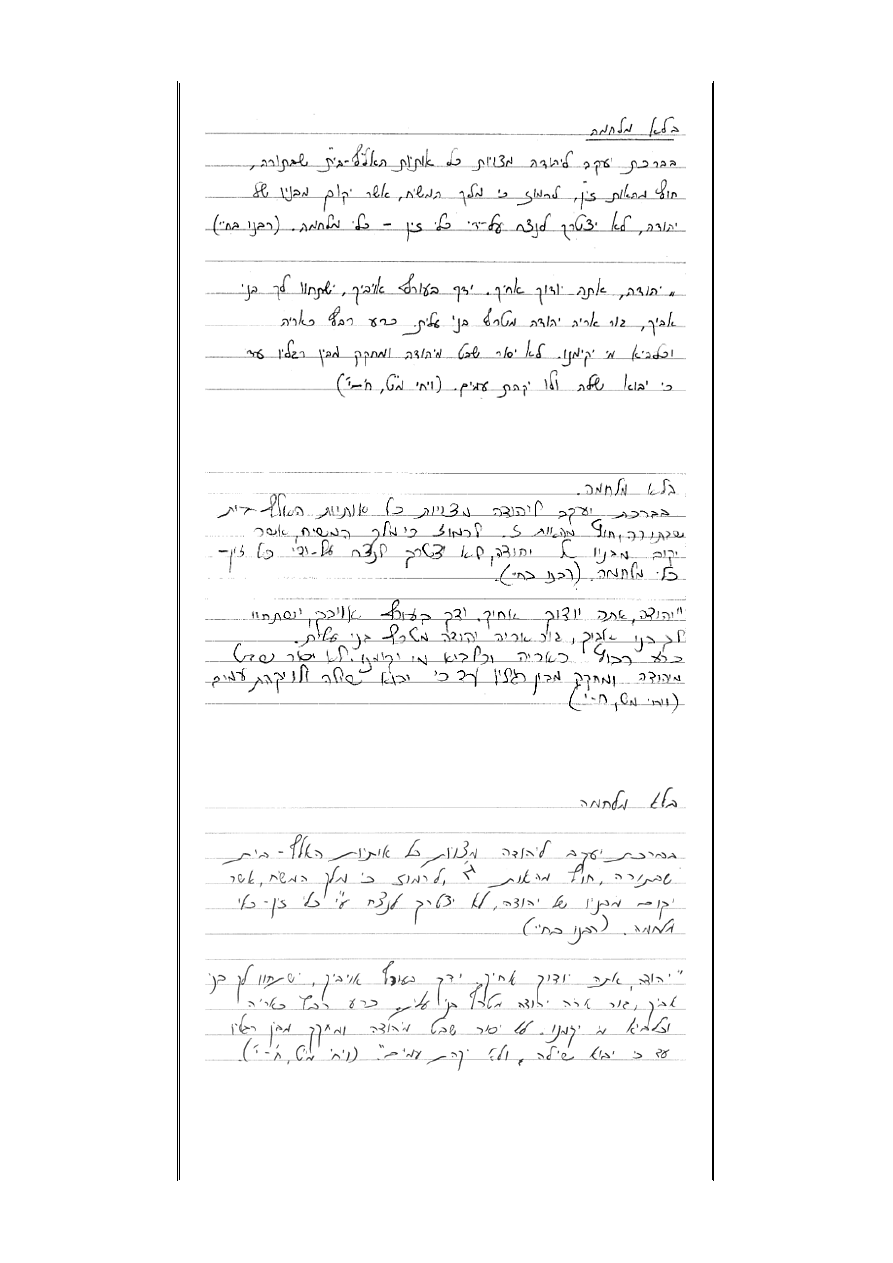 בלא מלחמה
בברכת יעקב ליהודה מצויות כל אותיות האל"ף-בי"ת שבתורה,
חוץ מהאות זין, לרמוז כי מלך המשיח, אשר יקום מבניו של
יהודה, לא יצטרך לנצח על-ידי כלי זין - כלי מלחמה. (רבנו בחיי)
"יהודה, אתה יודוך אחיך. ידך בעורף אויביך, ישתחוו לך בני
אביך, גור אריה יהודה מטרף בני עלית. כרע רבץ כאריה
וכלביא מי יקימנו. לא יסור שבט מיהודה ומחקק מבין רגליו עד
כי יבוא שלה ולו יקהת עמים. (ויחי מ"ט, ח'-י')
בלא מלחמה.
בברכת יעקב ליהודה מצויות כל אותיות האלף-בית
שבתורה, חוץ מהאות ז. לרמוז כי מלך המשיח, אשר
יקום מבניו של יהודה, לא יצטרך לנצח על-ידי כל זין-
כלי מלחמה. (רבנו בחיי).
"יהודה, אתה יודוך אחיך, ידך בעורף אויביך, ישתחוו
לך בני אביך, גור אריה יהודה מטרף בני עלית.
כרע רבוץ כאריה וכלביא מי יקימנו. לא יסור שבט
מיהודה ומחקק מבין רגליו עד כי יבוא שילה ולו יקהת עמים
(ויחי מט, ח-י)
בלא מלחמה
בברכת יעקב ליהודה מצויות כל אותיות האלף-בית
שבתורה, חוץ מהאות ז, לרמוז כי מלך המשיח, אשר
יקום מבניו של יהודה, לא יצטרך לנצח ע"י כלי זין-כלי
מלחמה. (רבנו בחיי)
"יהודה, אתה יודוך אחיך, ידך בעורף אויביך, ישתחוו לך בני
אביך, גור אריה יהודה מטרף בני עלית. כרע רבץ כאריה
וכלביא מי יקימנו. לא יסור שבט מיהודה ומחקק מבין רגליו
עד כי יבוא שילה, ולו יקהת עמים." (ויחי מ"ט, ח'-י').